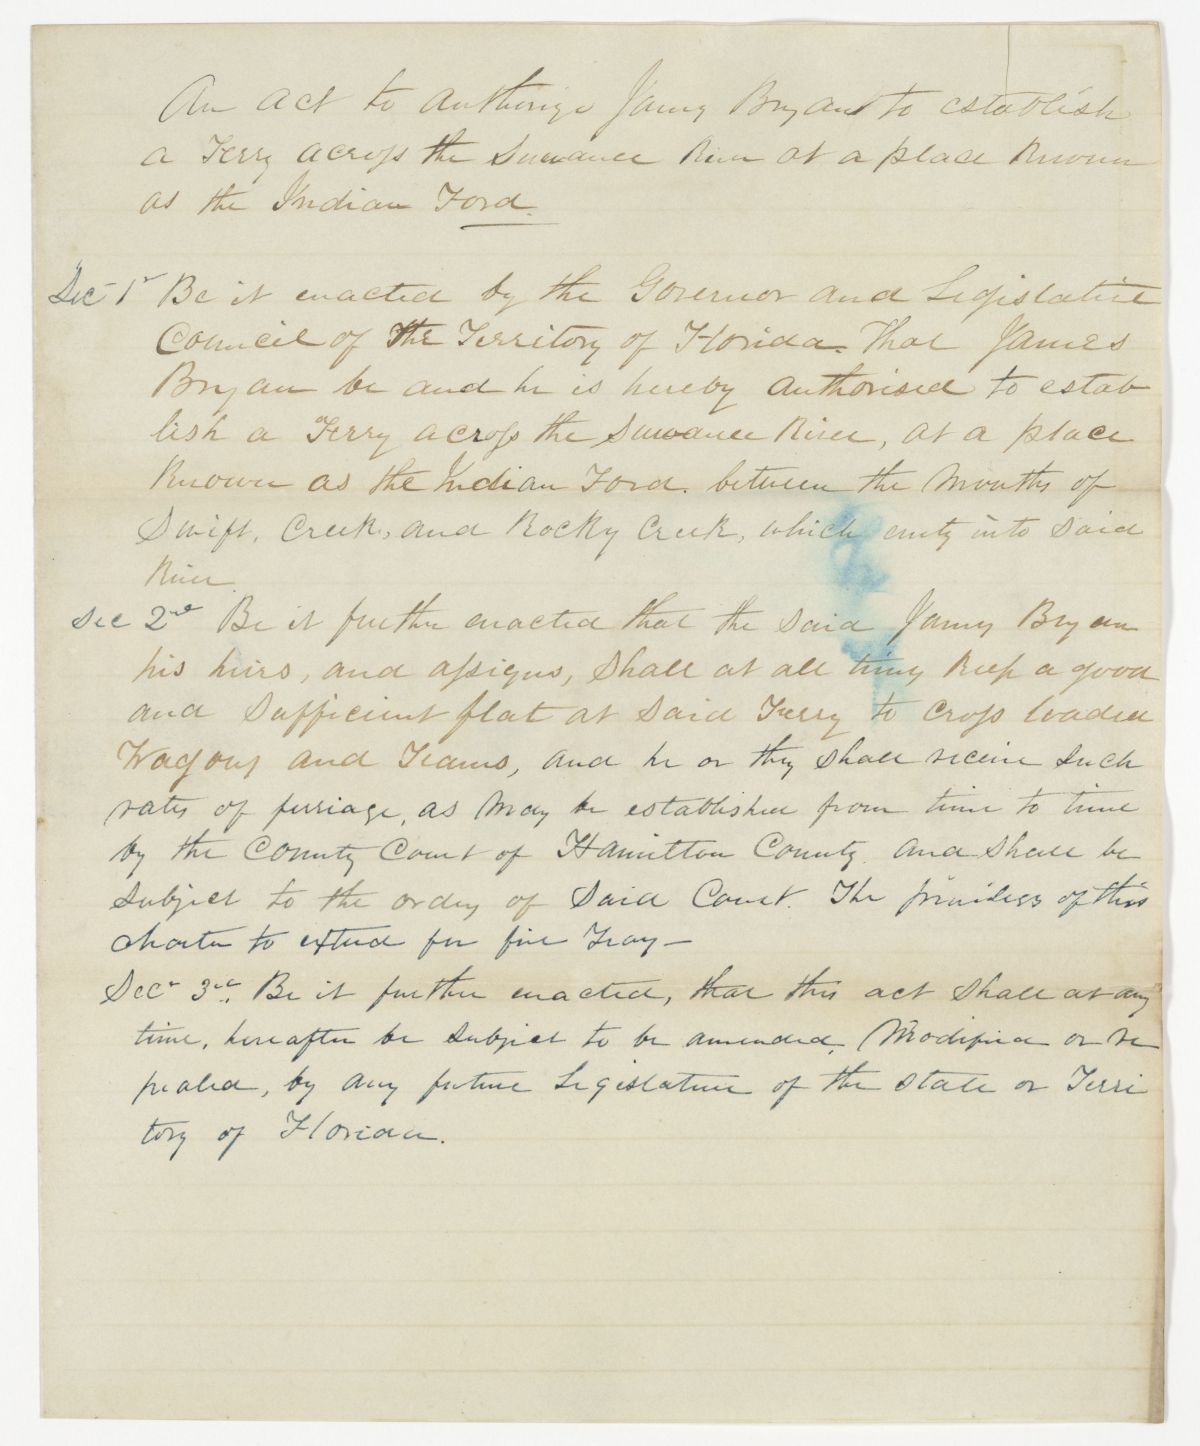 An act to authorize James Bryan to establish
a Ferry across the Suwanee River at a place known
as the Indian Ford.
Sec 1st Be it enacted by the Governor and Legislative
Council of the Territory of Florida. That James
Bryan be and he is hereby authorised to estab
lish a Ferry across the Suwanee River, at a place
Known as the Indian Ford. between the Mouths of
Swift, Creek, and Rocky Creek, which emty into Said
River.
Sec 2nd Be it further enacted that the Said James Bryan
his heirs, and assigns, Shall at all times Keep a good
and Sufficient flat at Said Ferry to cross loaded
Wagons and Teams, and he or they shall receive Such
rates of ferriage, as May be established from time to time
by the County Court of Hamilton County. and Shall be
Subject to the orders of Said Court. The privileges of this
charter to extend for five Years—
Sec 3rd. Be it further enacted, that this act Shall at any
time, hereafter be Subject to be amended, Modified or re
pealed, by any future Legislature of the State or Terri
tory of Florida.